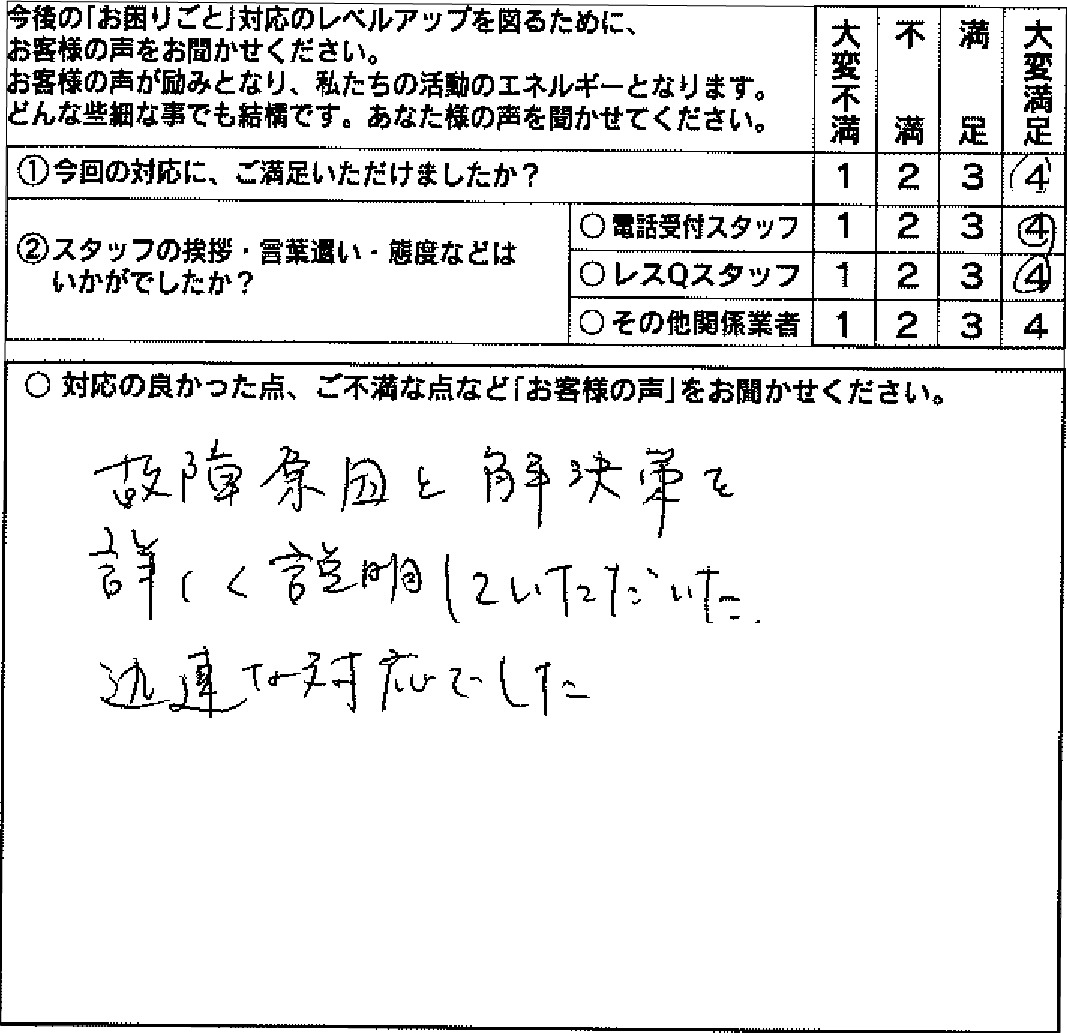 今後の「お困りごと」対応のレベルアップを図るために、
お客様の声をお聞かせください。
お客様の声が励みとなり、私たちの活動のエネルギーとなります。
どんな些細な事でも結構です。あなた様の声を聞かせてください。
大変不満 不満 満足 大変満足
①今回の対応に、ご満足いただけましたか? 1 2 3 4
②スタッフの挨拶・言葉遣い・態度などは
いかがでしたか?
○電話受付スタッフ 1 2 3 4
○レスQスタッフ 1 2 3 4
○その他関係業者 1 2 3 4
○ 対応の良かった点、ご不満な点など「お客様の声」をお聞かせください。
故障原因と解決策を
詳しく説明していただいた.
迅速な対応でした